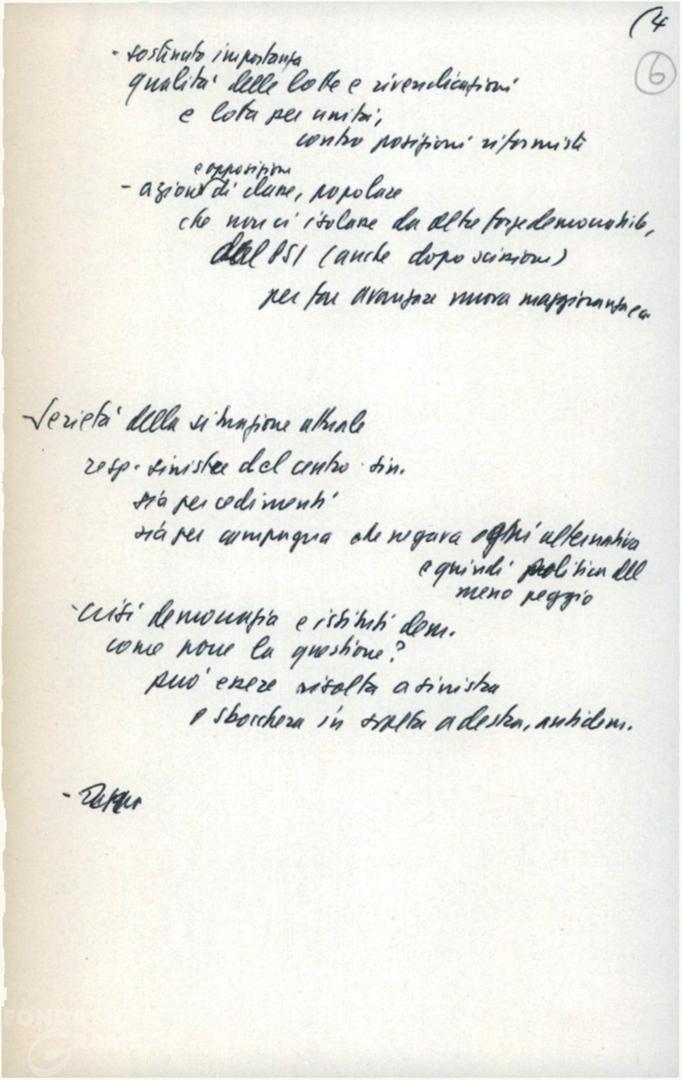 (4
6
- sostenuto importanza
qualità delle lotte e rivendicazioni
e lotta per unità,
contro posizioni riformiste
e opposizione
- azione di classe, popolare
che non ci isolare da altre forze democratiche,
dal PSI (anche dopo scissione)
per far avanzare nuova maggioranza
Serietà della situazione attuale
resp. sinistre del centro sin.
sia per cedimenti
sia per campagna che negava ogni alternativa
e quindi politica del
meno peggio
- crisi democrazia e istituti dem.
come pone la questione?
può essere risolta a sinistra
o sboccherà in svolta a destra, antidem.
-
FONDAZIONE
GRAMSCI